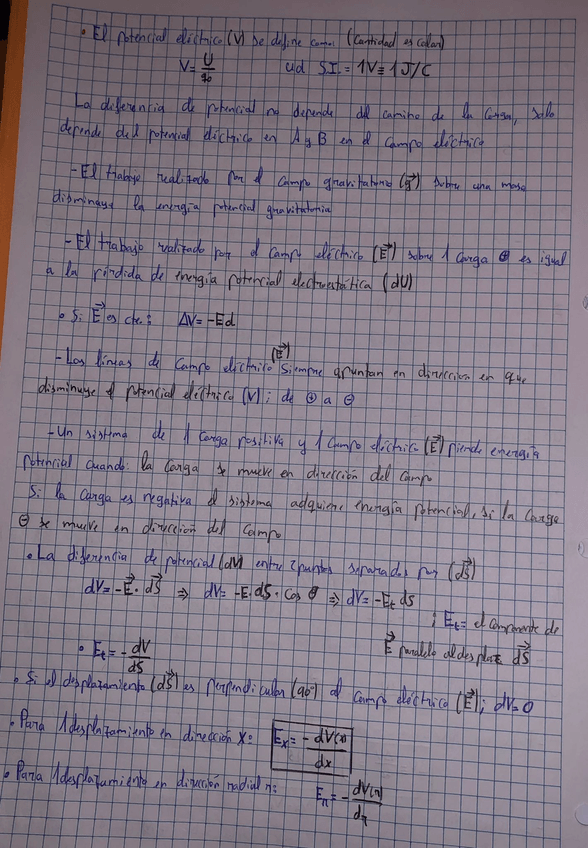 • El potencial eléctrico (V) se define como (Cantidad escalar)
V = U/q₀    ud S.I. = 1V = 1 J/C
La diferencia de potencial no depende del camino de la carga, solo
depende del potencial eléctrico en A y B en el campo eléctrico
- El trabajo realizado por el campo gravitatorio (g⃗) sobre una masa
disminuye la energía potencial gravitatoria
- El trabajo realizado por el campo eléctrico (E⃗) sobre 1 carga ⊕ es igual
a la pérdida de energía potencial electroestática (dU)
• Si E⃗ es cte.: ΔV = -Ed
- Las líneas de campo eléctrico (E⃗) siempre apuntan en direccion en que
disminuye el potencial eléctrico (V); de ⊕ a ⊖
- Un sistema de 1 carga positiva y 1 campo eléctrico (E⃗) pierde energía
potencial cuando: la carga se mueve en dirección del campo
Si la carga es negativa el sistema adquiere energía potencial, si la carga
⊖ se mueve en dirección del campo
• La diferencia de potencial (dV) entre 2 puntos separados por (dS⃗)
dV = -E⃗ · dS⃗ ⇒ dV = -E · dS · cos θ ⇒ dV = -Eₜ dS
; Eₜ = el componente de
E⃗ paralelo al desplaz. dS⃗
• Eₜ = - dV/dS
• Si el desplazamiento (dS⃗) es perpendicular (90°) al campo eléctrico (E⃗); dV = 0
• Para 1 desplazamiento en dirección x: Eₓ = - dV(x)/dx
• Para 1 desplazamiento en dirección radial r: Eᵣ = - dV(r)/dr